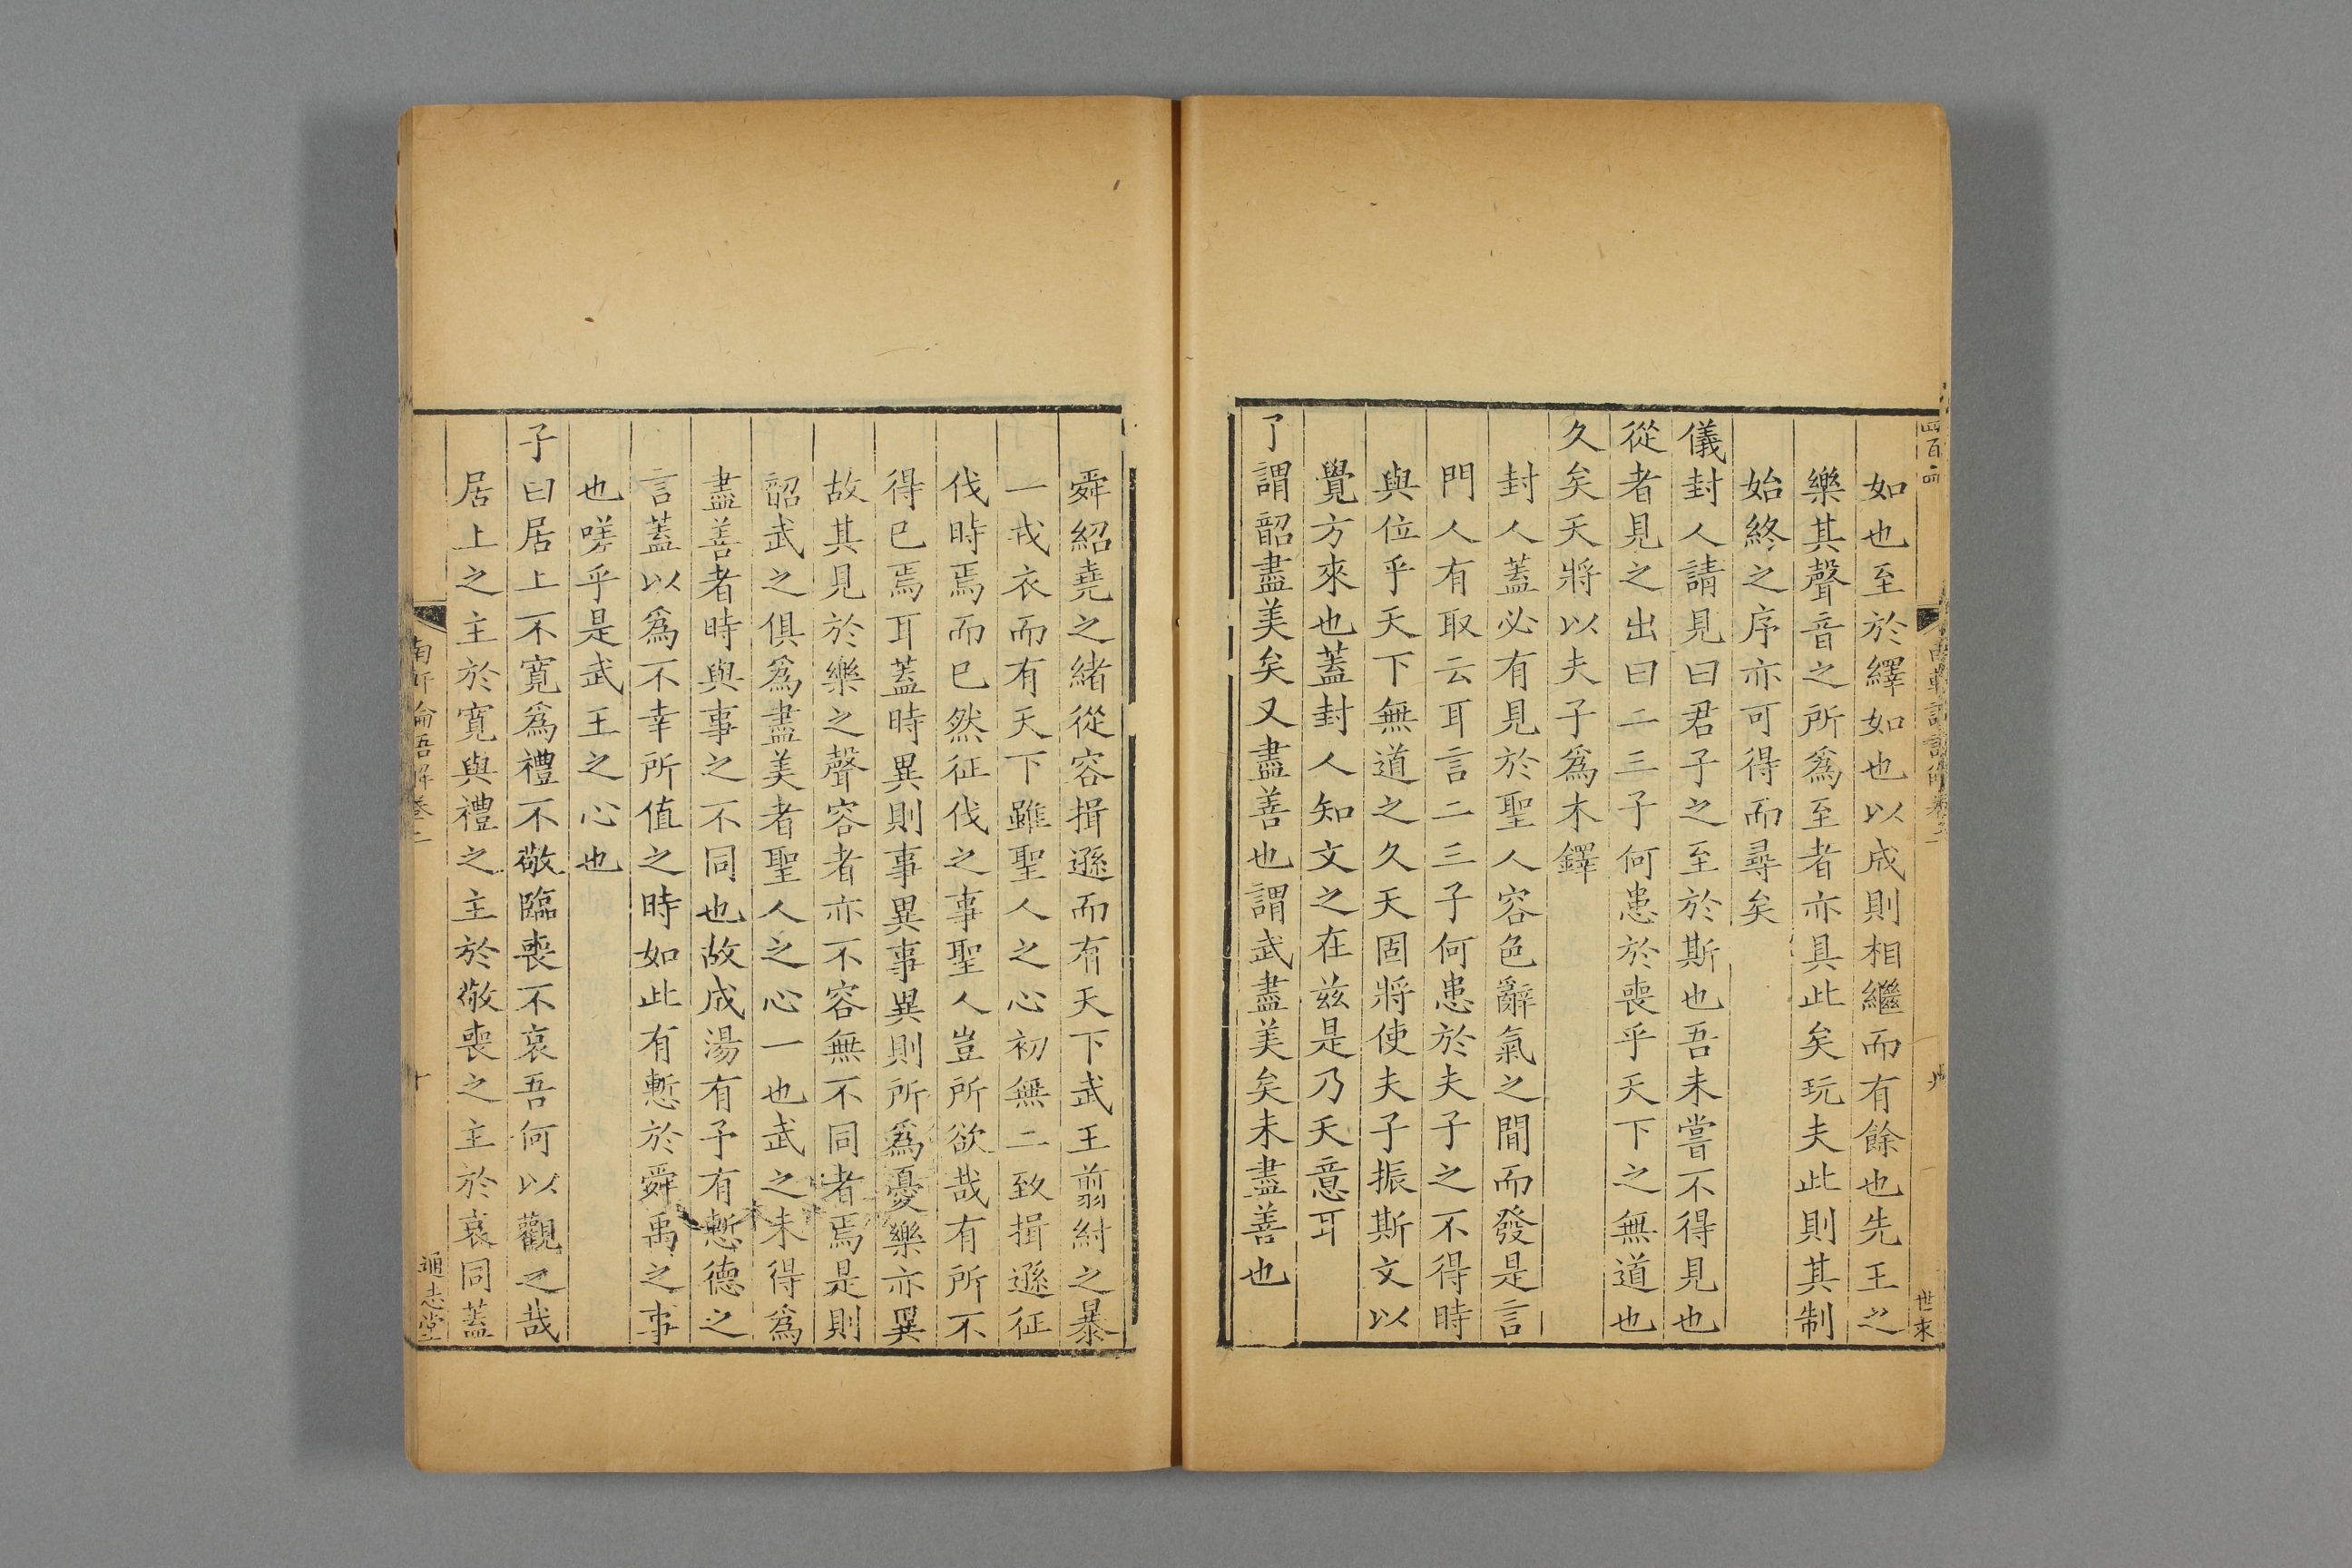 四百四
如也至於繹如也以成則相繼而有餘也先王之
樂其聲音之所爲至者亦具此矣玩夫此則其制
始終之序亦可得而尋矣
儀封人請見曰君子之至於斯也吾未嘗不得見也
從者見之出曰二三子何患於喪乎天下之無道也
久矣天將以夫子爲木鐸
封人蓋必有見於聖人容色辭氣之間而發是言
門人有取云耳言二三子何患於夫子之不得時
與位乎天下無道之久天固將使夫子振斯文以
覺方來也蓋封人知文之在兹是乃天意耳
了謂韶盡美矣又盡善也謂武盡美矣未盡善也
舜紹堯之緒從容揖遜而有天下武王翦紂之暴
一戎衣而有天下雖聖人之心初無二致揖遜征
伐時焉而已然征伐之事聖人豈所欲哉有所不
得已焉耳蓋時異則事異事異則所爲憂樂亦異
故其見於樂之聲容者亦不容無不同者焉是則
韶武之俱爲盡美者聖人之心一也武之未得爲
盡善者時與事之不同也故成湯有予有慙德之
言蓋以爲不幸所值之時如此有慙於舜禹之事
也嗟乎是武王之心也
子曰居上不寬爲禮不敬臨喪不哀吾何以觀之哉
居上之主於寬與禮之主於敬喪之主於哀同蓋
南軒論語解卷二
十
通志堂